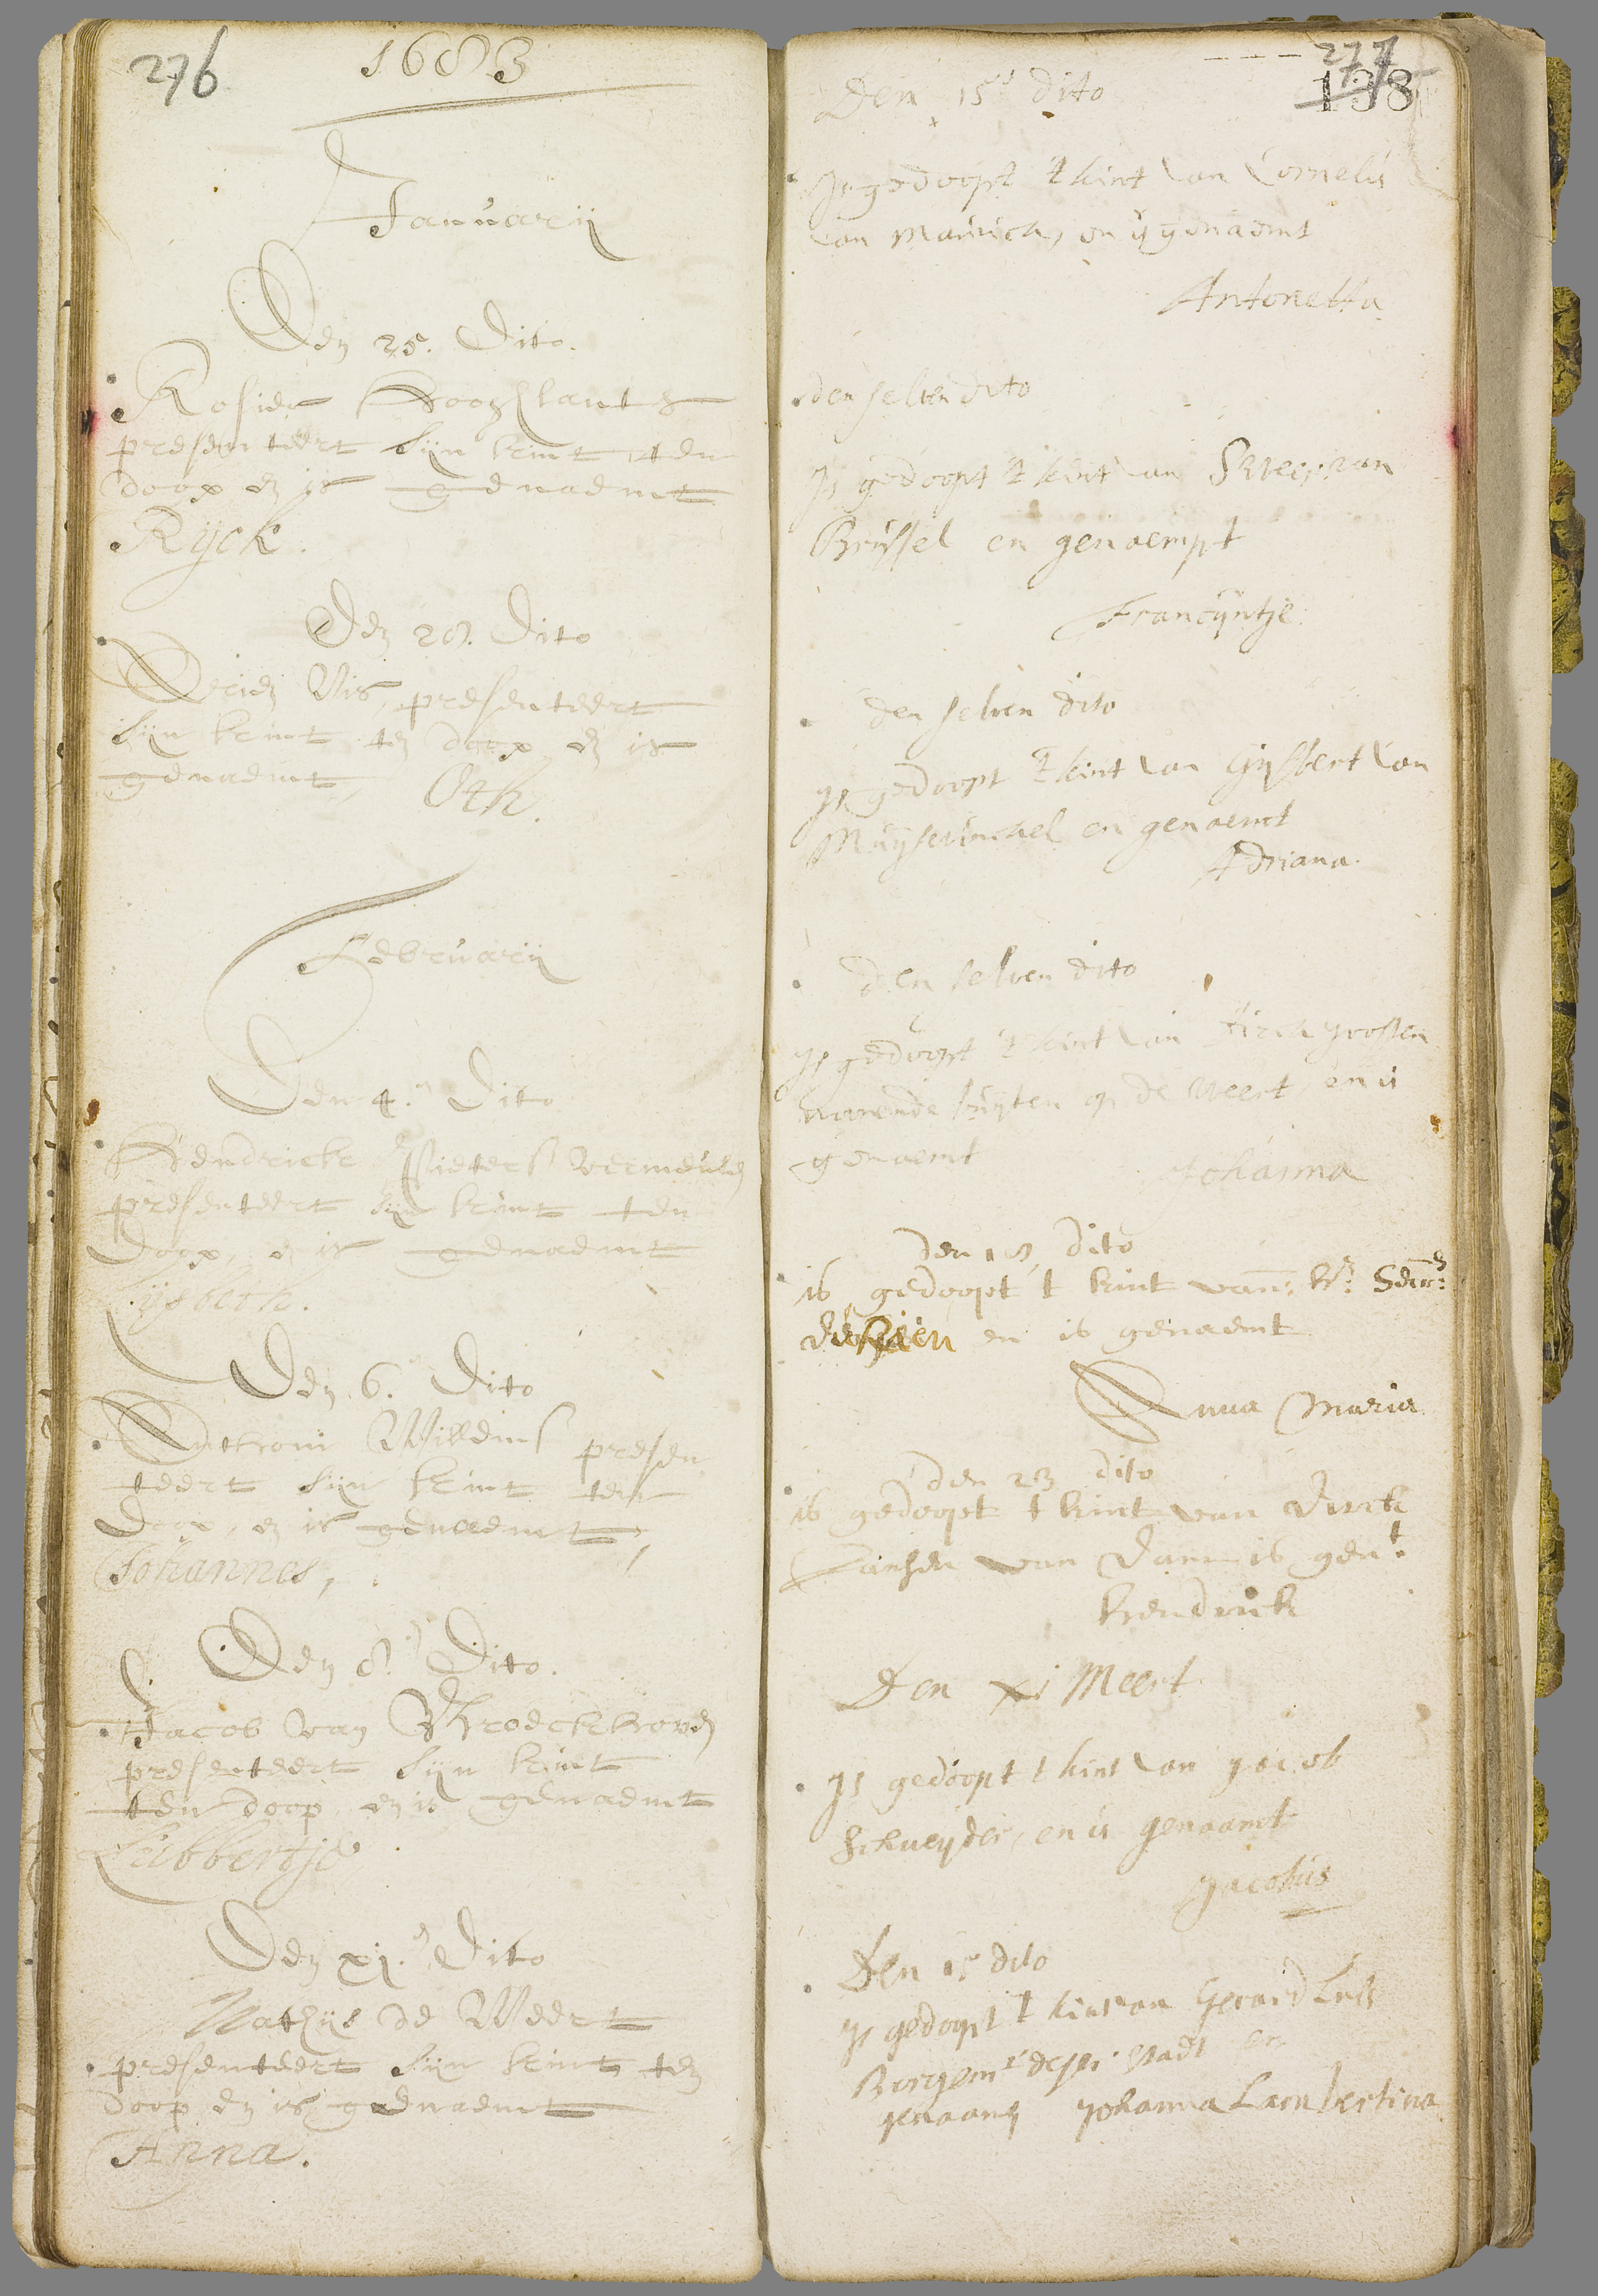 276
1683
Januarij
Den 25. Dito.
Rosier Hooghlants
presenteert sijn kint ten
doop en is genaemt
Ryck.
Den 28. Dito
Vis, presenteert
sijn kint ten doop en is
genaemt,
Oth.
Februarij
Den 4.e Dito
Hendrick Pieters vermeulen
presenteert sijn kint ten
doop, en is genaemt
Lijsbeth.
Den 6. Dito
Anthoni Willems presen
teert sijn kint ten
doop, en is genaemt,
Johannes,
Den 8.e Dito.
Jacob van Broeckhoven
presenteert sijn kint
ten doop, en is genaemt
Lubbertje
Den xj.e Dito
Mathijs de Weert
presenteert sijn kint ten
doop en is genaemt
Anna.
277
138
Den 15e dito
Is gedoopt 't kint van Cornelis
van Maurick, en is genaemt
Antonetta
den selven dito
Is gedoopt 't kint van van
Brussel en genaempt
Francyntje
den selven dito
Is gedoopt 't kint van Gijsbert van
Muijswinckel en genaemt
Adriana
den selven dito
Is gedoopt 't kint van Joosten
woonende buijten op de Weert en is
genaemt
Johanna
den 18 dito
is gedoopt t kint van
en is genaemt
Anna Maria
den 23 dito
is gedoopt t kint van Dirck
Jansen van Dam is gent.
Hendrick
Den xi Meert
Is gedoopt t kint van Jacob
Schneijder, en is genaamt
Jacobus
Den 15 dito
Is gedoopt t kint van Gerard
Borgemr deser stadt en
genaamt Johanna Lambertina